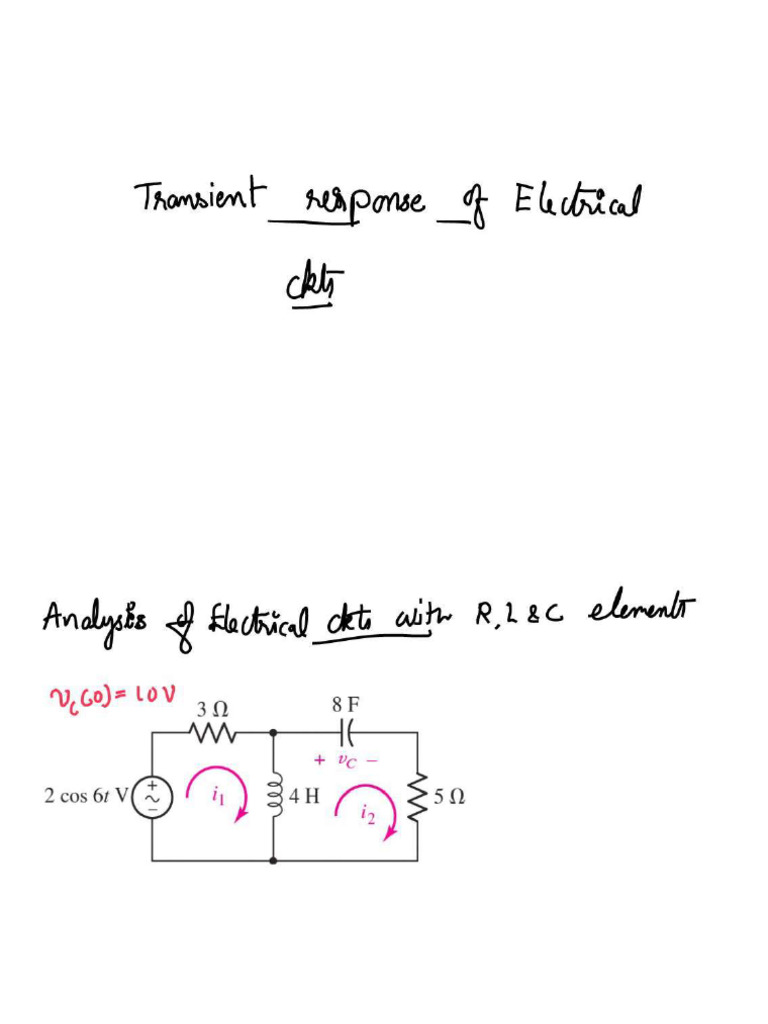 Transient response of Electrical
ckts
Analysis of Electrical ckts with R, L & C elements
v_C(0) = 10V
3 Ω
8 F
+ v_C −
2 cos 6t V
+
−
i_1
4 H
i_2
5 Ω